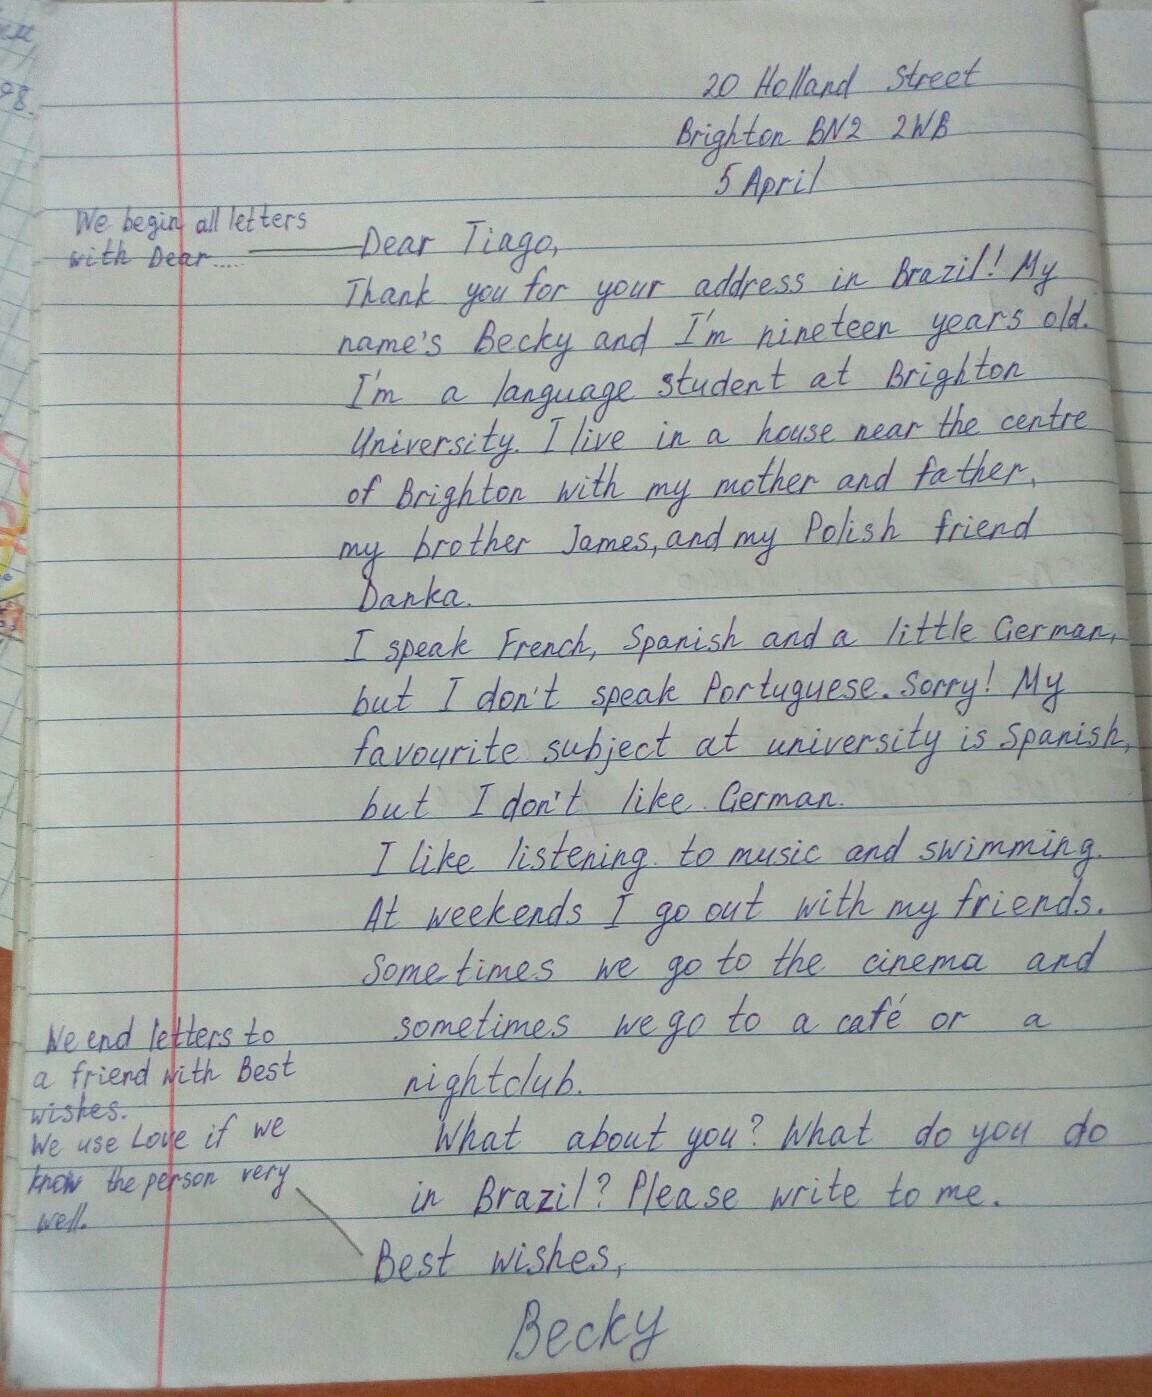 20 Holland Street
Brighton BN2 2WB
5 April
We begin all letters
with Dear.....
Dear Tiago,
Thank you for your address in Brazil! My
name's Becky and I'm nineteen years old.
I'm a language student at Brighton
University. I live in a house near the centre
of Brighton with my mother and father,
my brother James, and my Polish friend
Danka.
I speak French, Spanish and a little German,
but I don't speak Portuguese. Sorry! My
favourite subject at university is Spanish,
but I don't like German.
I like listening to music and swimming.
At weekends I go out with my friends.
Sometimes we go to the cinema and
sometimes we go to a café or a
nightclub.
What about you? What do you do
in Brazil? Please write to me.
We end letters to
a friend with Best
wishes.
We use Love if we
know the person very
well.
Best wishes,
Becky